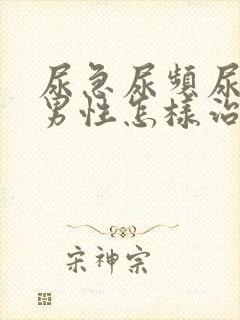 尿急尿頻尿
男性怎樣治
宋神宗